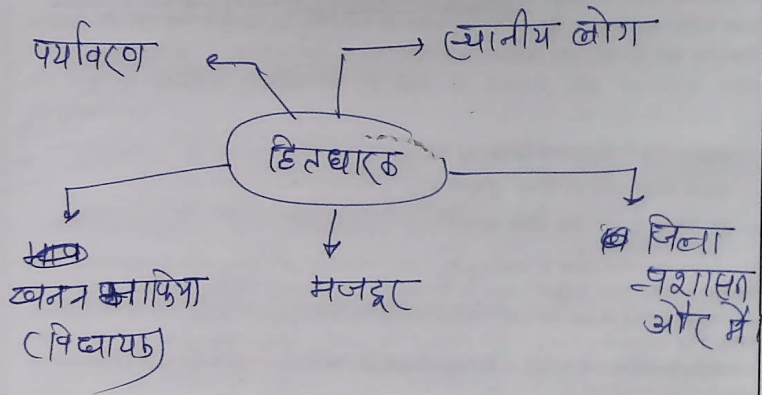 पर्यावरण
स्थानीय लोग
हितधारक
खनन माफिया
(विधायक)
मजदूर
जिला
प्रशासन
और मैं